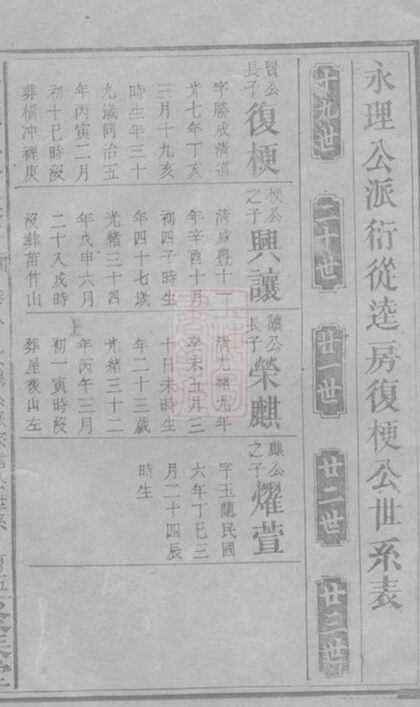 永理公派衍從逵房復梗公世系表
十九世
二十世
廿一世
廿二世
廿三世
賢公長子
復梗
字勝成清道
光七年丁亥
三月十九亥
時生年三十
九歲同治五
年丙寅二月
初十巳時歿
葬橫冲裡庚
梗公之子
興讓
清咸豐十一
年辛酉十月
初四子時生
年四十七歲
光緒三十四
年戊申六月
二十八戌時
歿葬苗竹山
讓公長子
榮麒
清光緒九年
癸未五月二
十日未時生
年二十三歲
光緒三十二
年丙午三月
初一寅時歿
葬屋後山左
麒公之子
燿萱
字玉蘭民國
六年丁巳三
月二十四辰
時生